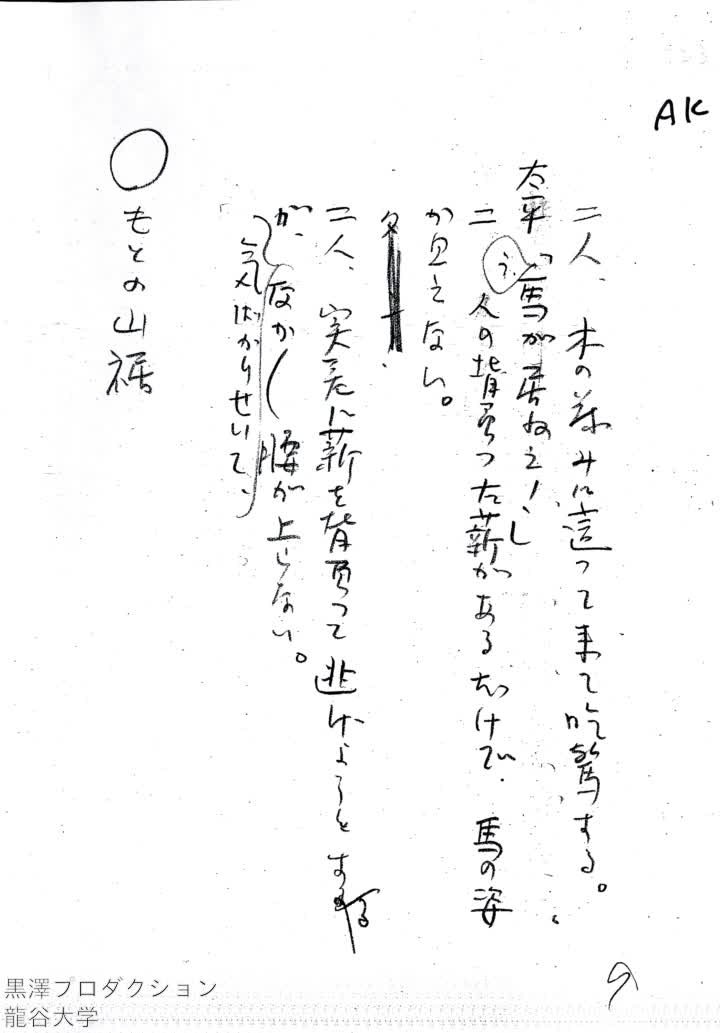 AK
二人、木の茂みに這って来て吃驚する。
太平「馬が居ねえ!」
二人の背負った薪があるだけで、馬の姿
が見えない。
二人、実巻に薪を背負って逃げようとする
が、気ばかりせいて、なかなか腰が上らない。
○もとの山裾
9
黒澤プロダクション
龍谷大学